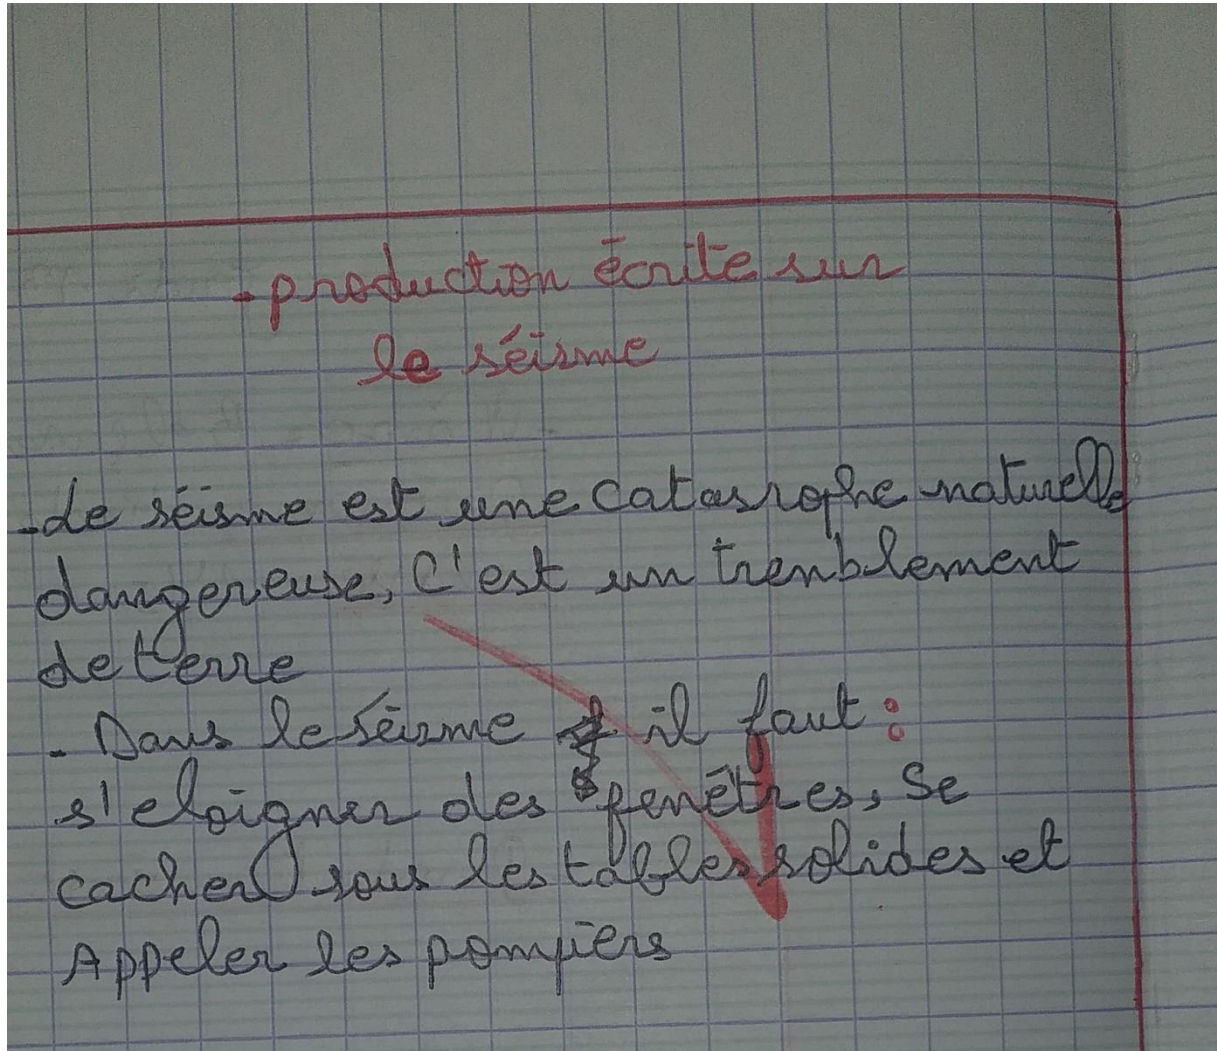 - production écrite sur
le séisme
- le séisme est une catasrophe naturelle
dangereuse, C'est un trenblement
de terre
- Dans le séisme il faut :
s'eloigner des fenêtres, Se
cacher sous les tables solides et
Appeler les pompiers